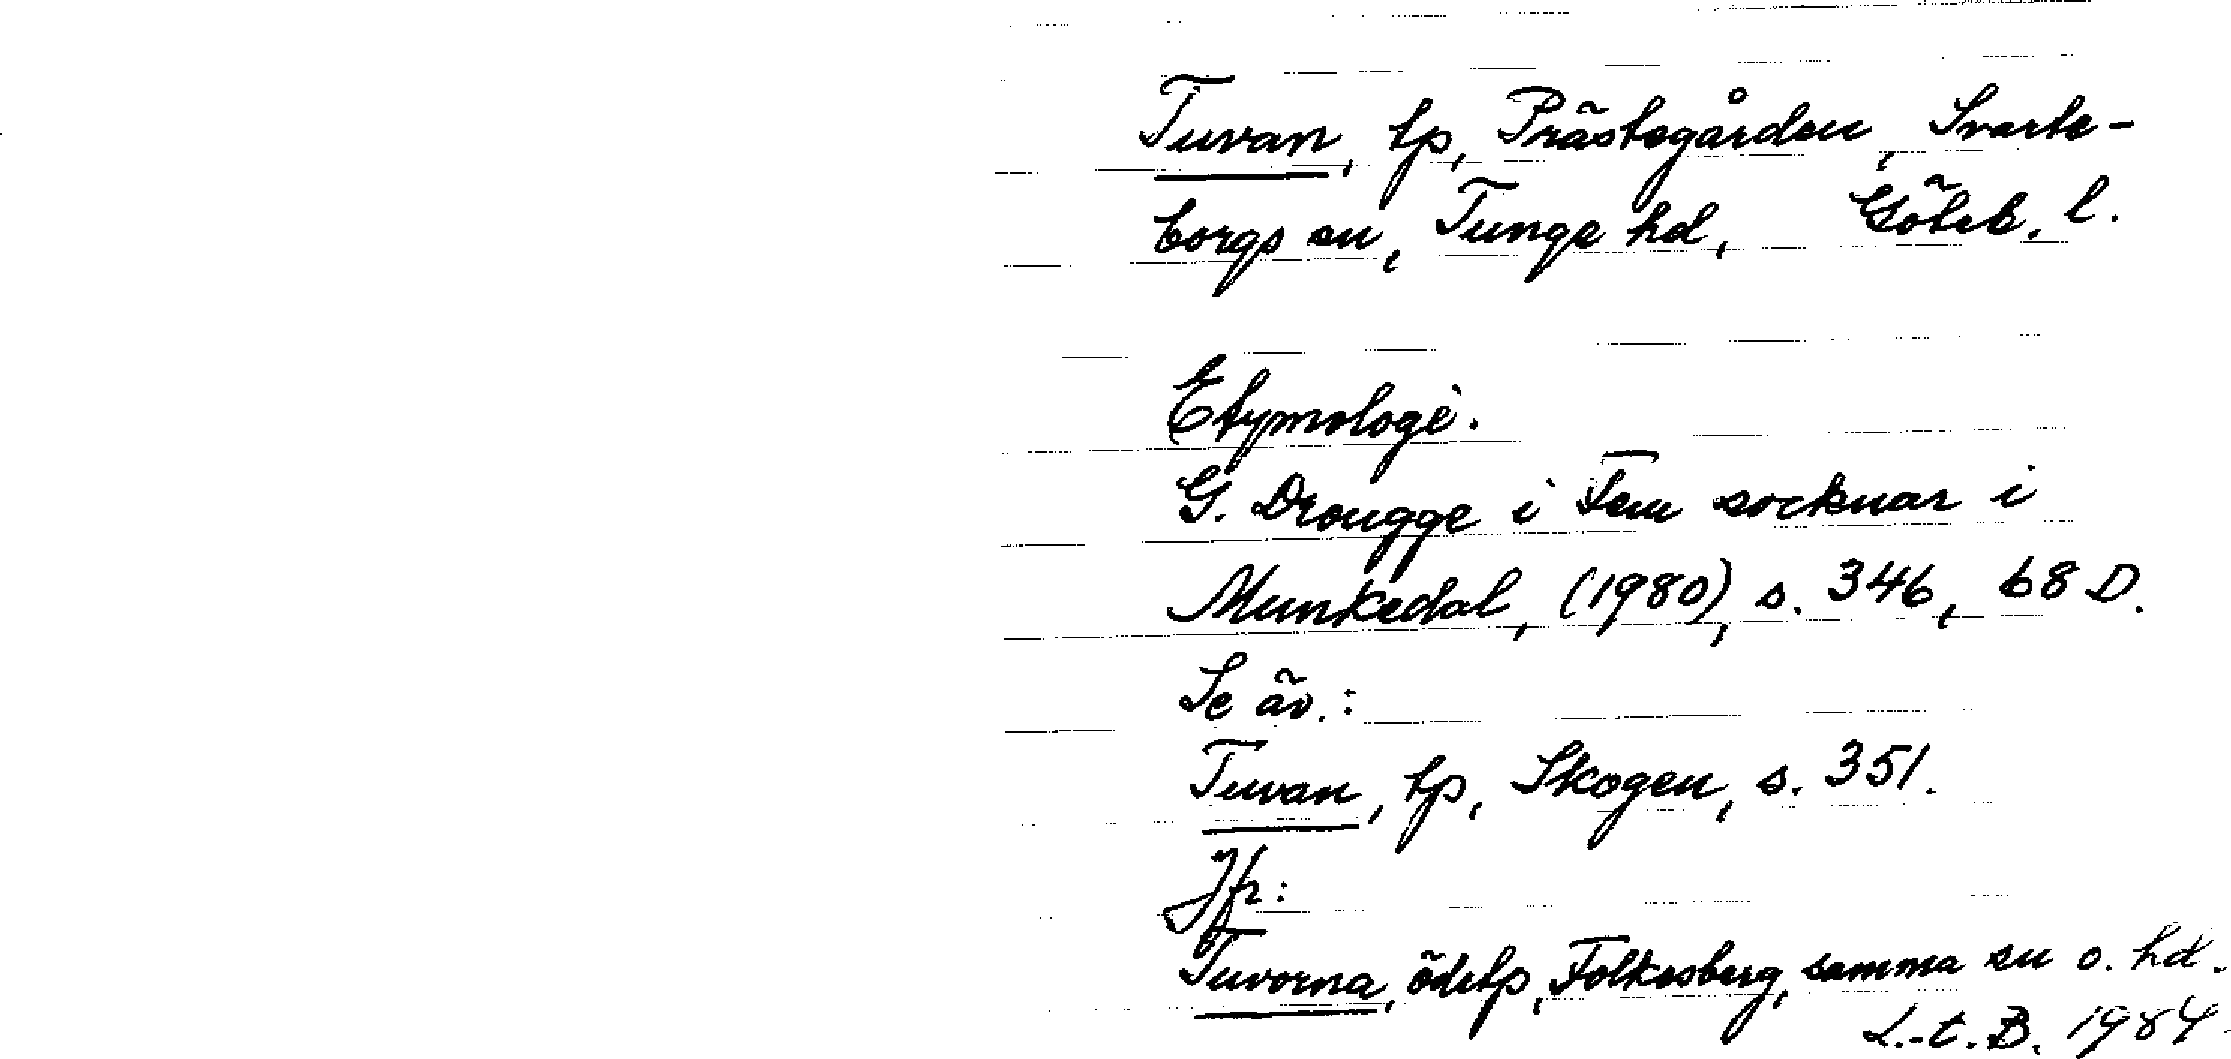 Tuvan, tp, Prästegården, Svarte-
borgs sn, Tunge hd, Göteb. l.
Etymologi.
G. Drougge i Fem socknar i
Munkedal, (1980), s. 346, 68 D.
Se äv.:
Tuvan, tp, Skogen, s. 351.
Jfr:
Tuvorna, ödetp, Folkesberg, samma sn o. hd.
L.-t. B. 1984.